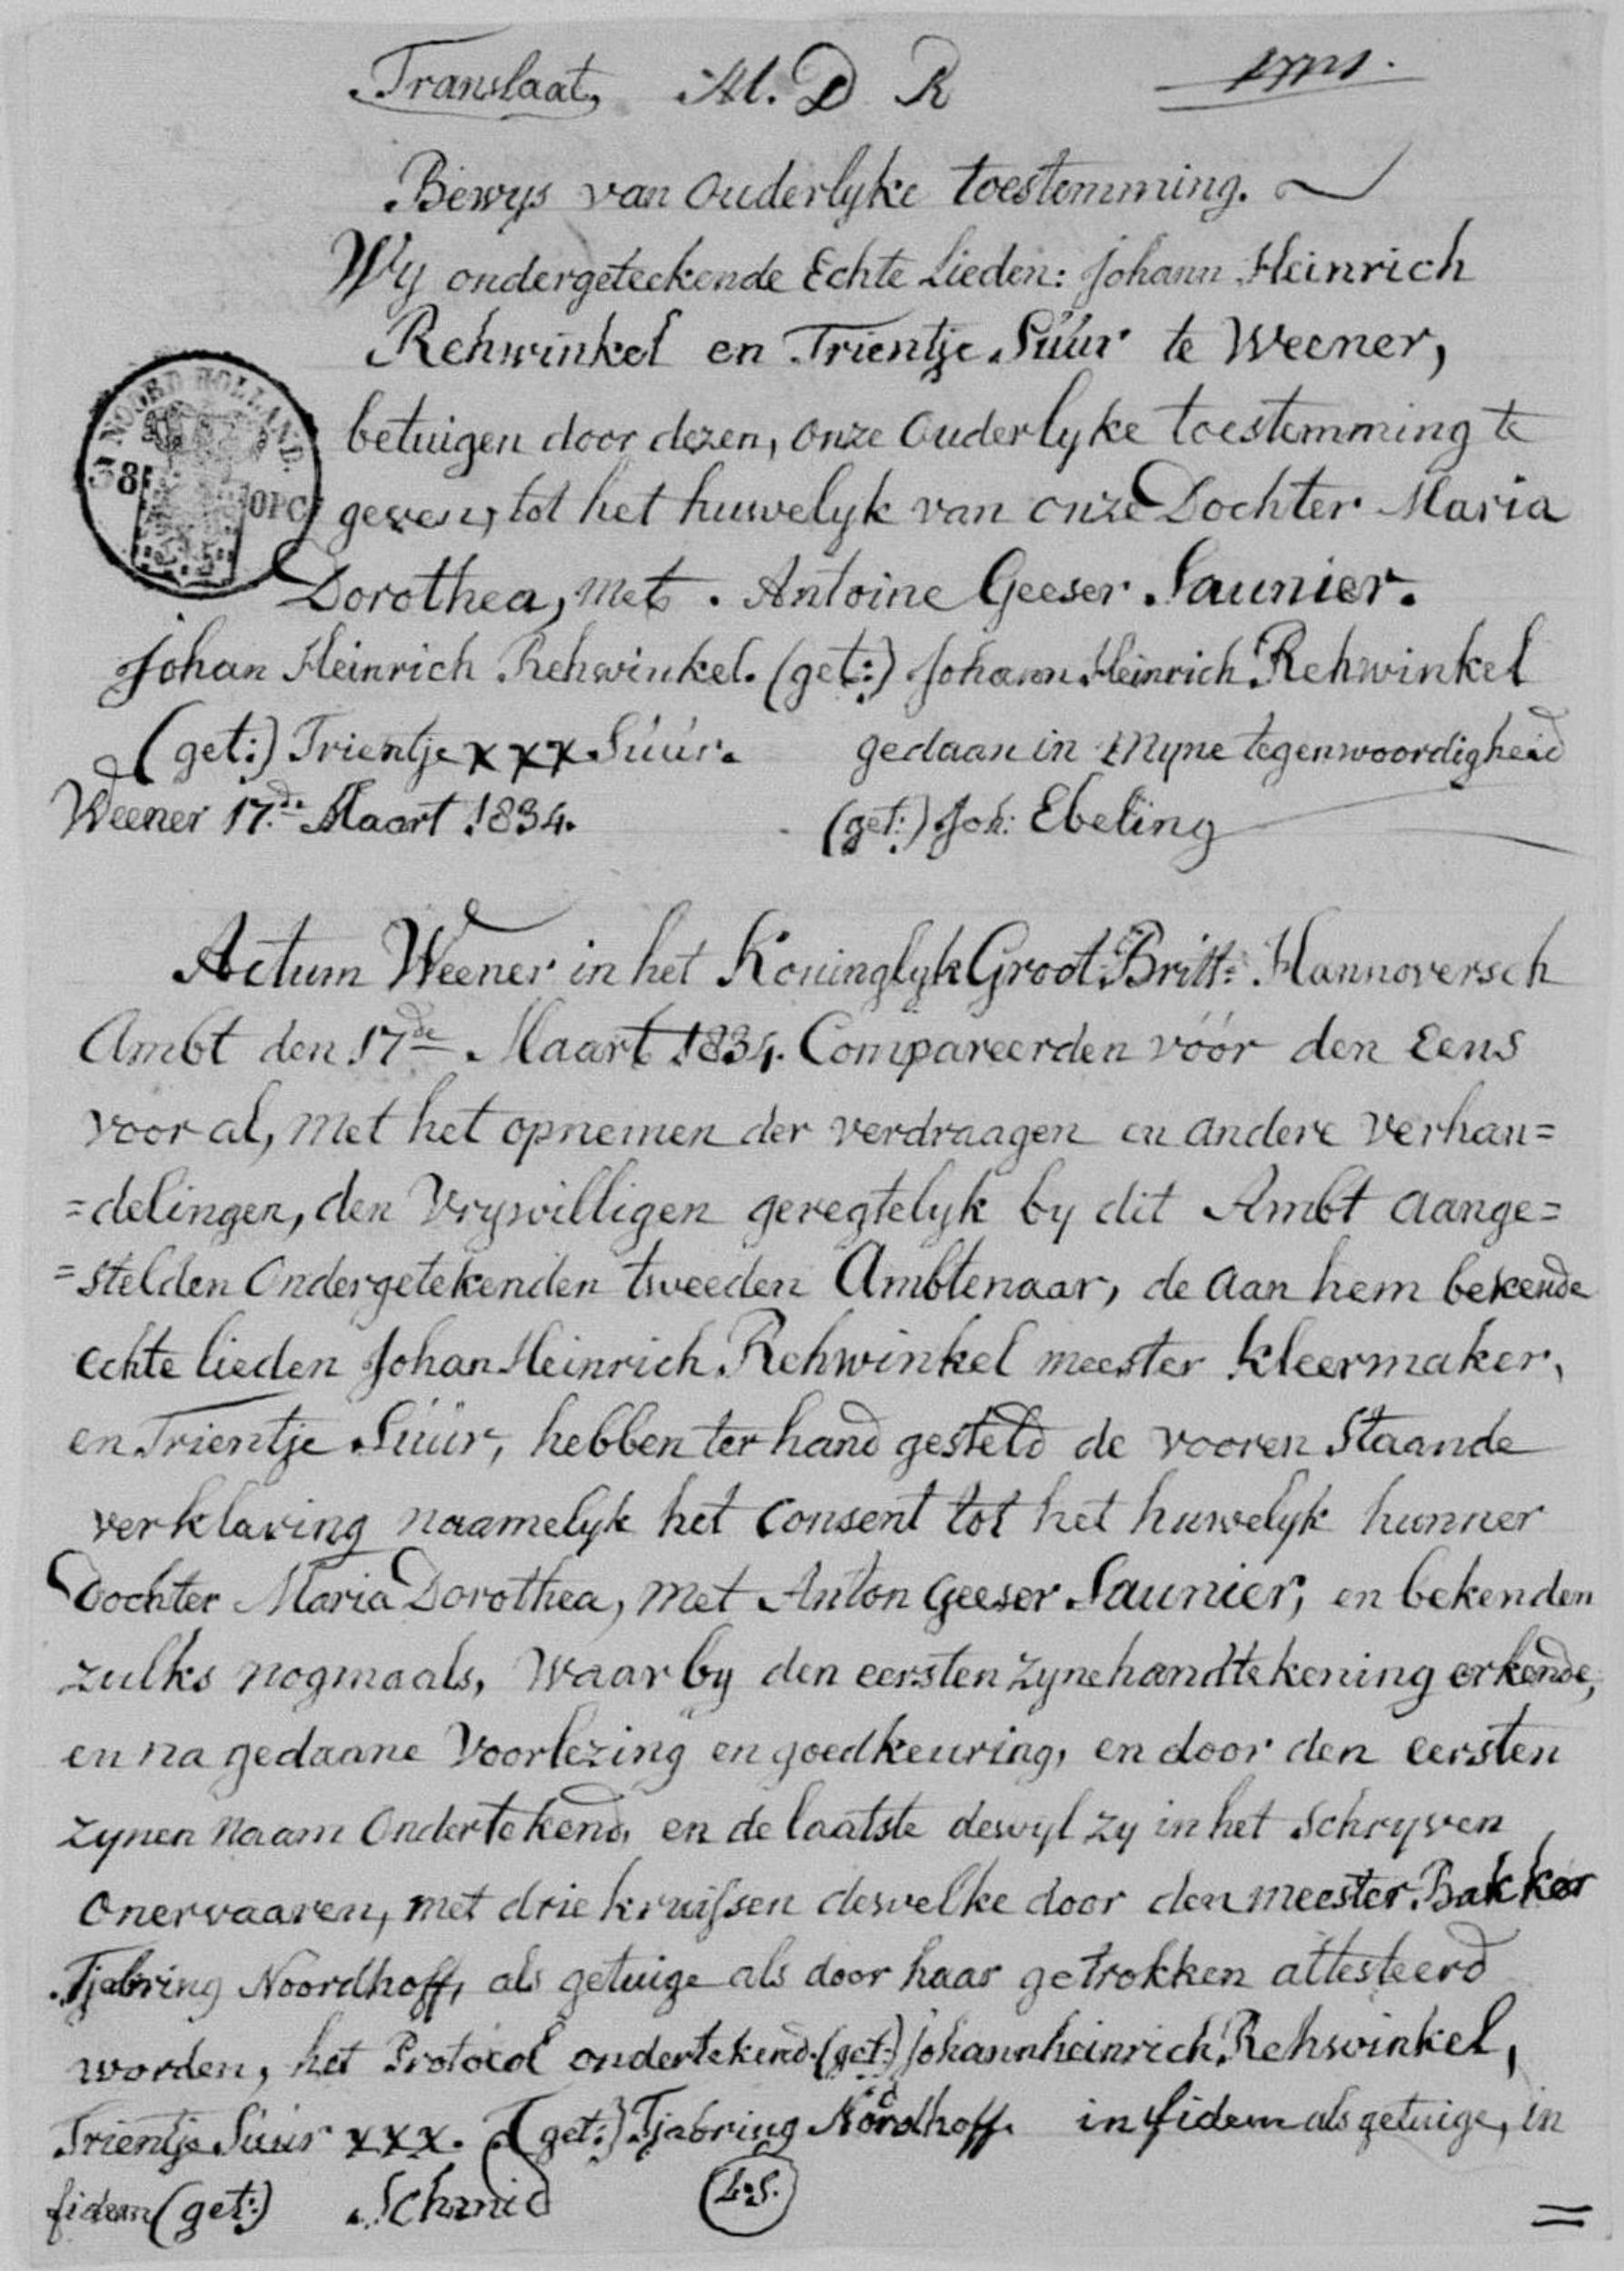 Translaat, M. D R
Bewys van Ouderlyke toestemming.
Wy ondergeteekende Echte Lieden: Johann Heinrich
Rehwinkel en Trientje Süür te Weener,
NOORD HOLLAND.
38 OPC
betuigen door dezen, onze Ouderlyke toestemming te
geven, tot het huwelyk van onze Dochter Maria
Dorothea, met. Antoine Geeser Saunier.
Johan Heinrich Rehwinkel. (get:) Johann Heinrich Rehwinkel
(get:) Trientje xxx Süür. gedaan in myne tegenwoordigheid
Weener 17.de Maart 1834. (get:) Joh: Ebeling
Actum Weener in het Koninglyk Groot Britt: Hannoversch
Ambt den 17de Maart 1834. Compareerden vóór den Eens
voor al, met het opnemen der verdraagen en andere verhan=
=delingen, den Vrywilligen geregtelyk by dit Ambt aange=
=stelden Ondergetekenden tweeden Ambtenaar, de aan hem bekende
echte lieden Johan Heinrich Rehwinkel meester kleermaker,
en Trientje Süür, hebben ter hand gesteld de vooren Staande
verklaring naamelyk het Consent tot het huwelyk hunner
Dochter Maria Dorothea, met Anton Geeser Saunier, en bekenden
zulks nogmaals, waar by den eersten zyne handtekening erkende,
en na gedaane Voorlezing en goedkeuring, en door den eersten
zynen Naam Ondertekend, en de laatste dewyl zy in het Schryven
Onervaaren, met drie kruissen dewelke door den meester Bakker
Tjabring Noordhoff, als getuige als door haar getrokken attesteerd
worden, het Protocol ondertekend. (get:) Johann heinrich Rehwinkel,
Trientje Süür xxx. (get:) Tjabring Nordhoff. in fidem als getuige, in
fidem (get:) Schmid (L.S.) =